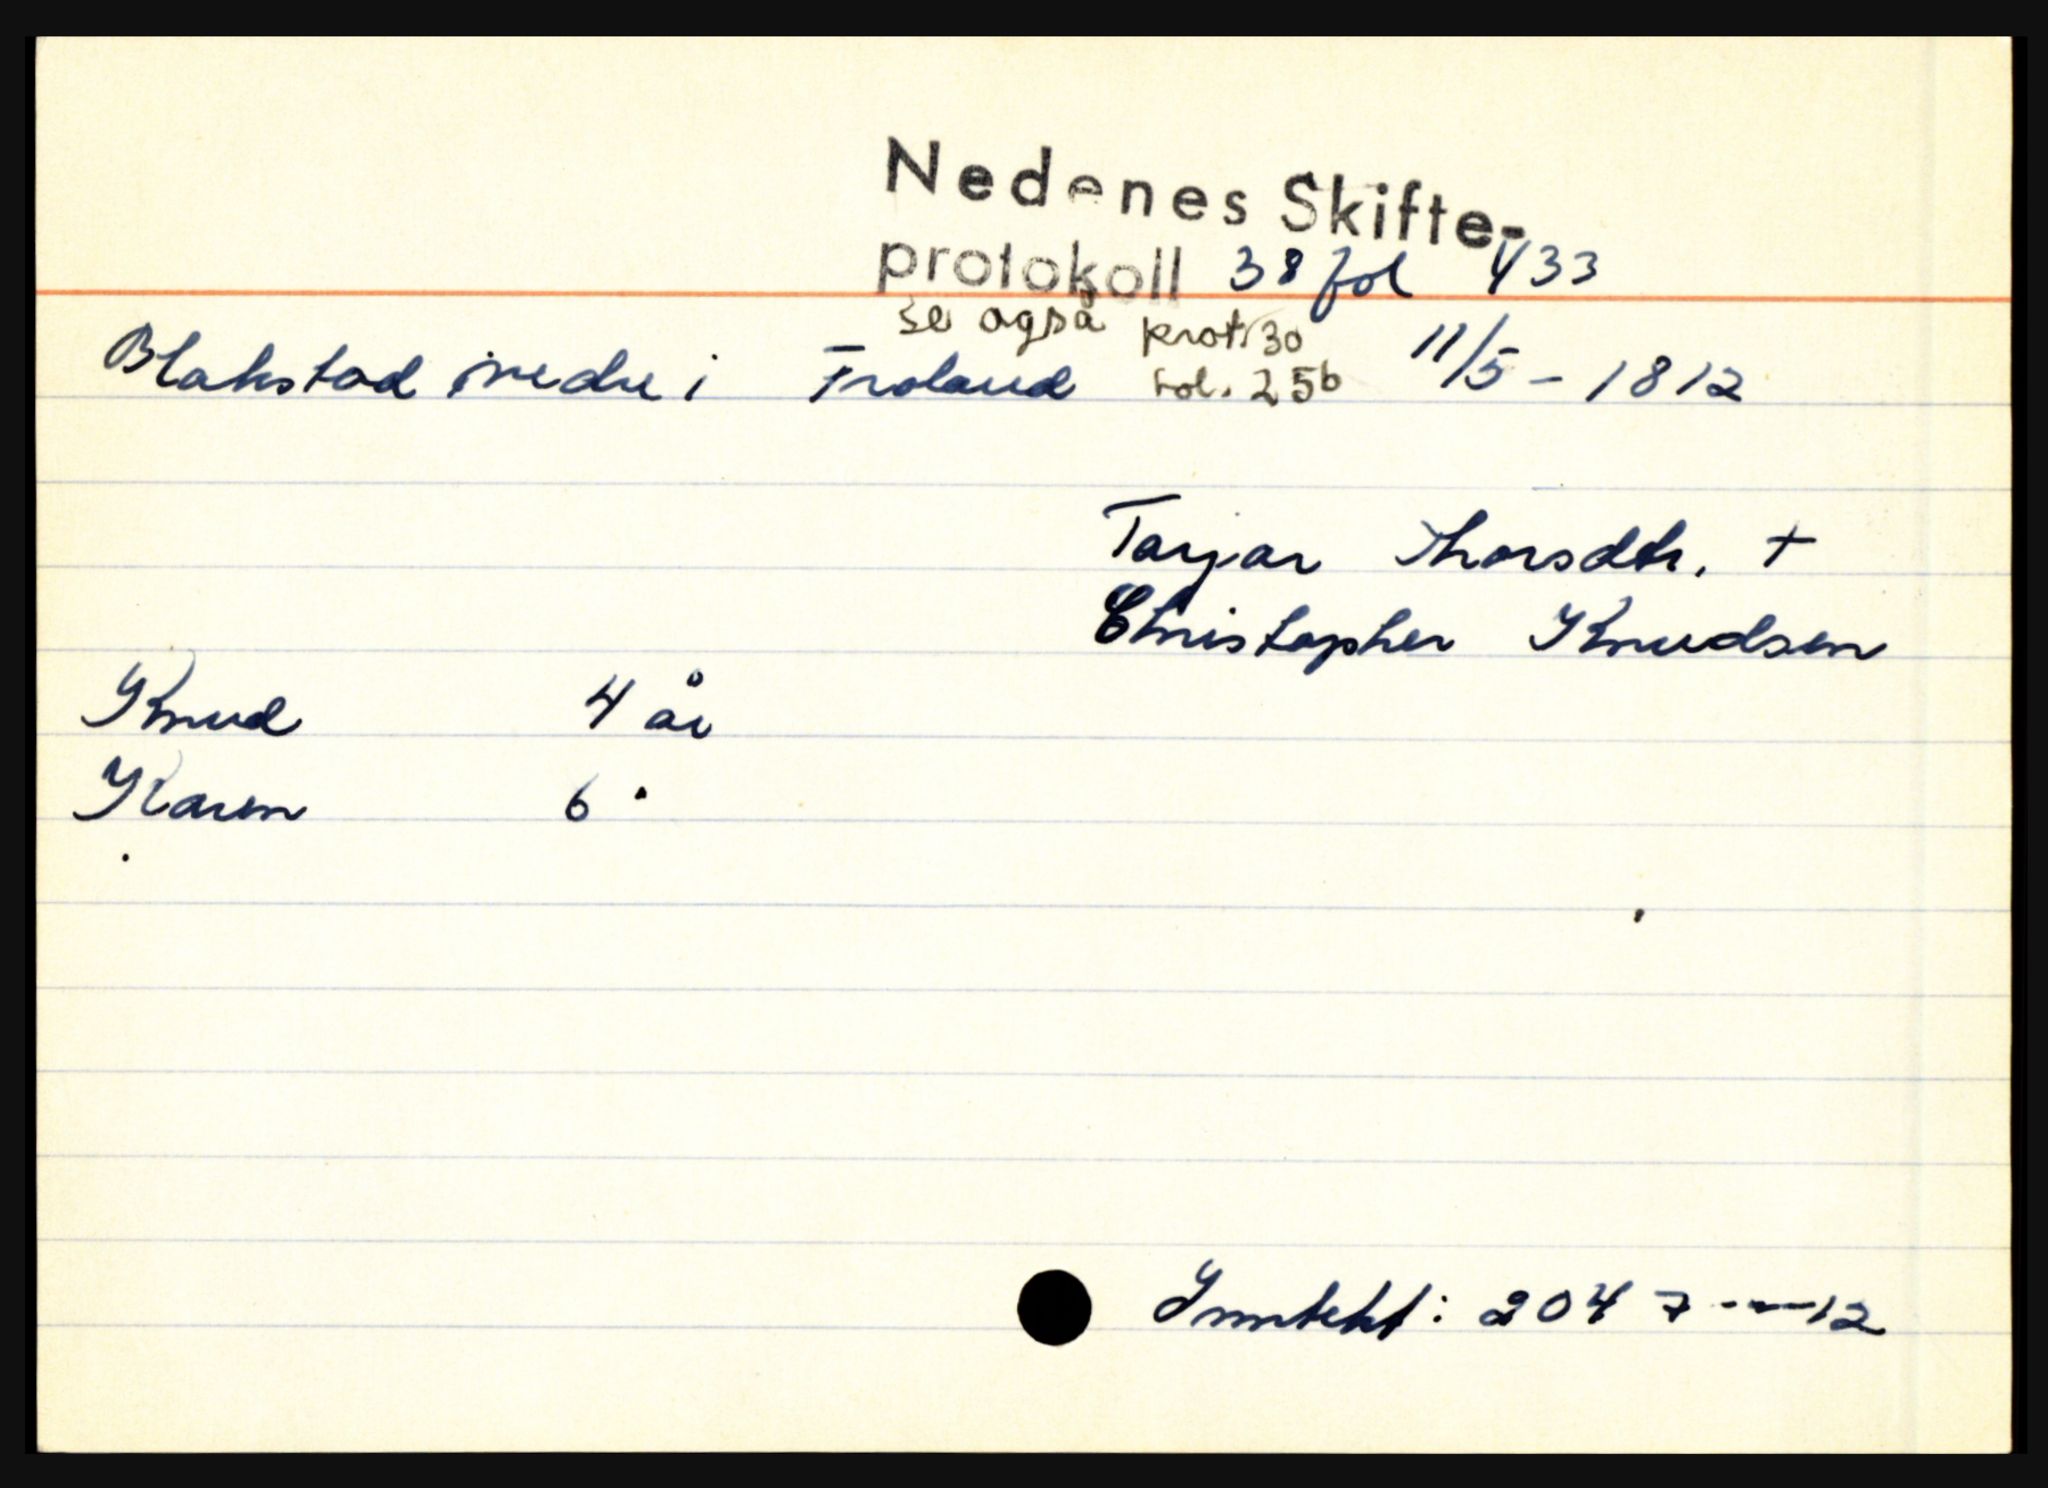 Nedenes Skifte-
protokoll 38 fol 433
se også prot. 30
fol. 25b
Blakstad nedre i Froland 11/5 - 1812
Tarjar Thorsdtr. +
Christopher Knudsen
Knud 4 år
Karen 6 "
Inntekt: 2047 --- 12